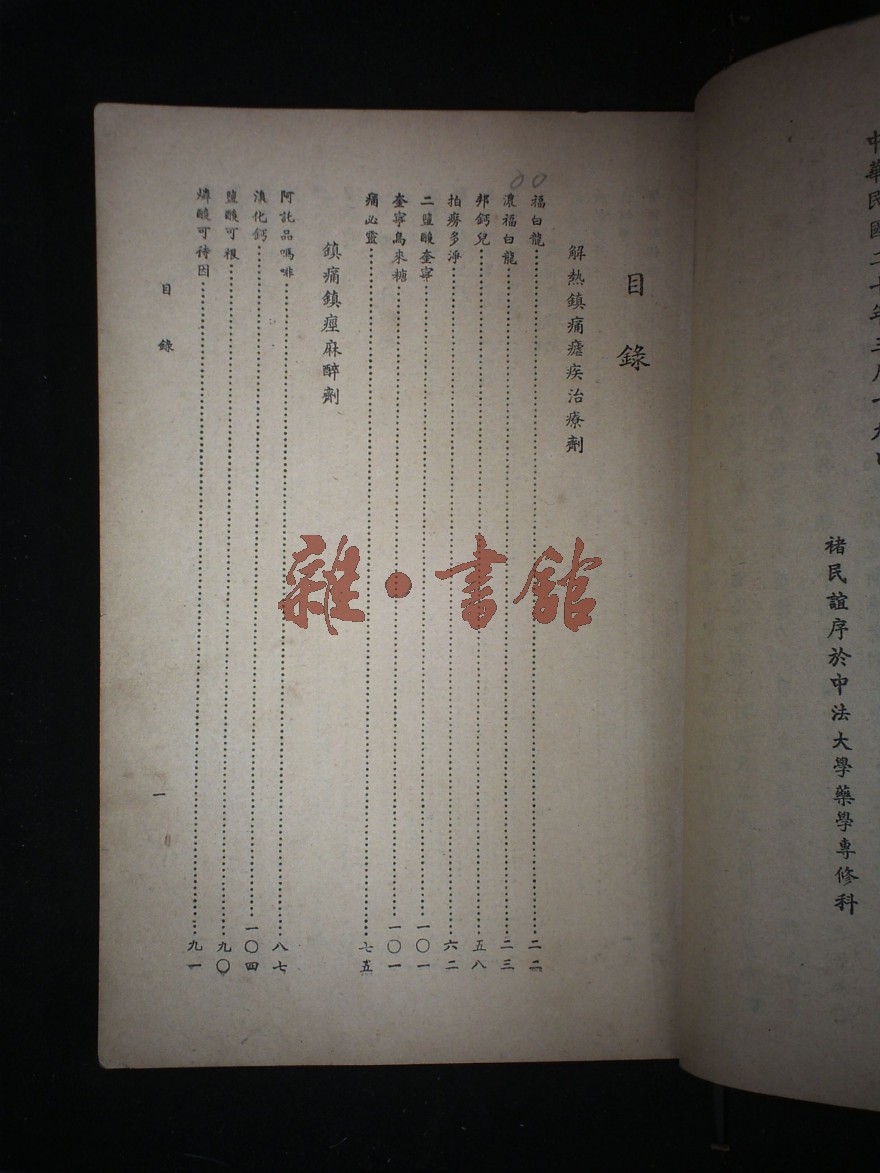 中華民國二十年三月十九日
褚民誼序於中法大學藥學專修科
目錄
解熱鎮痛瘧疾治療劑
福白龍 二二
濃福白龍 二三
邦鈣兒 五八
拍癆多淨 六二
二鹽酸奎寧 一〇一
奎寧烏來糖 一〇一
痛必靈 七五
鎮痛鎮痙麻醉劑
阿託品嗎啡 八七
溴化鈣 一〇四
鹽酸可根 九〇
燐酸可待因 九一
目錄
一
雜·書館